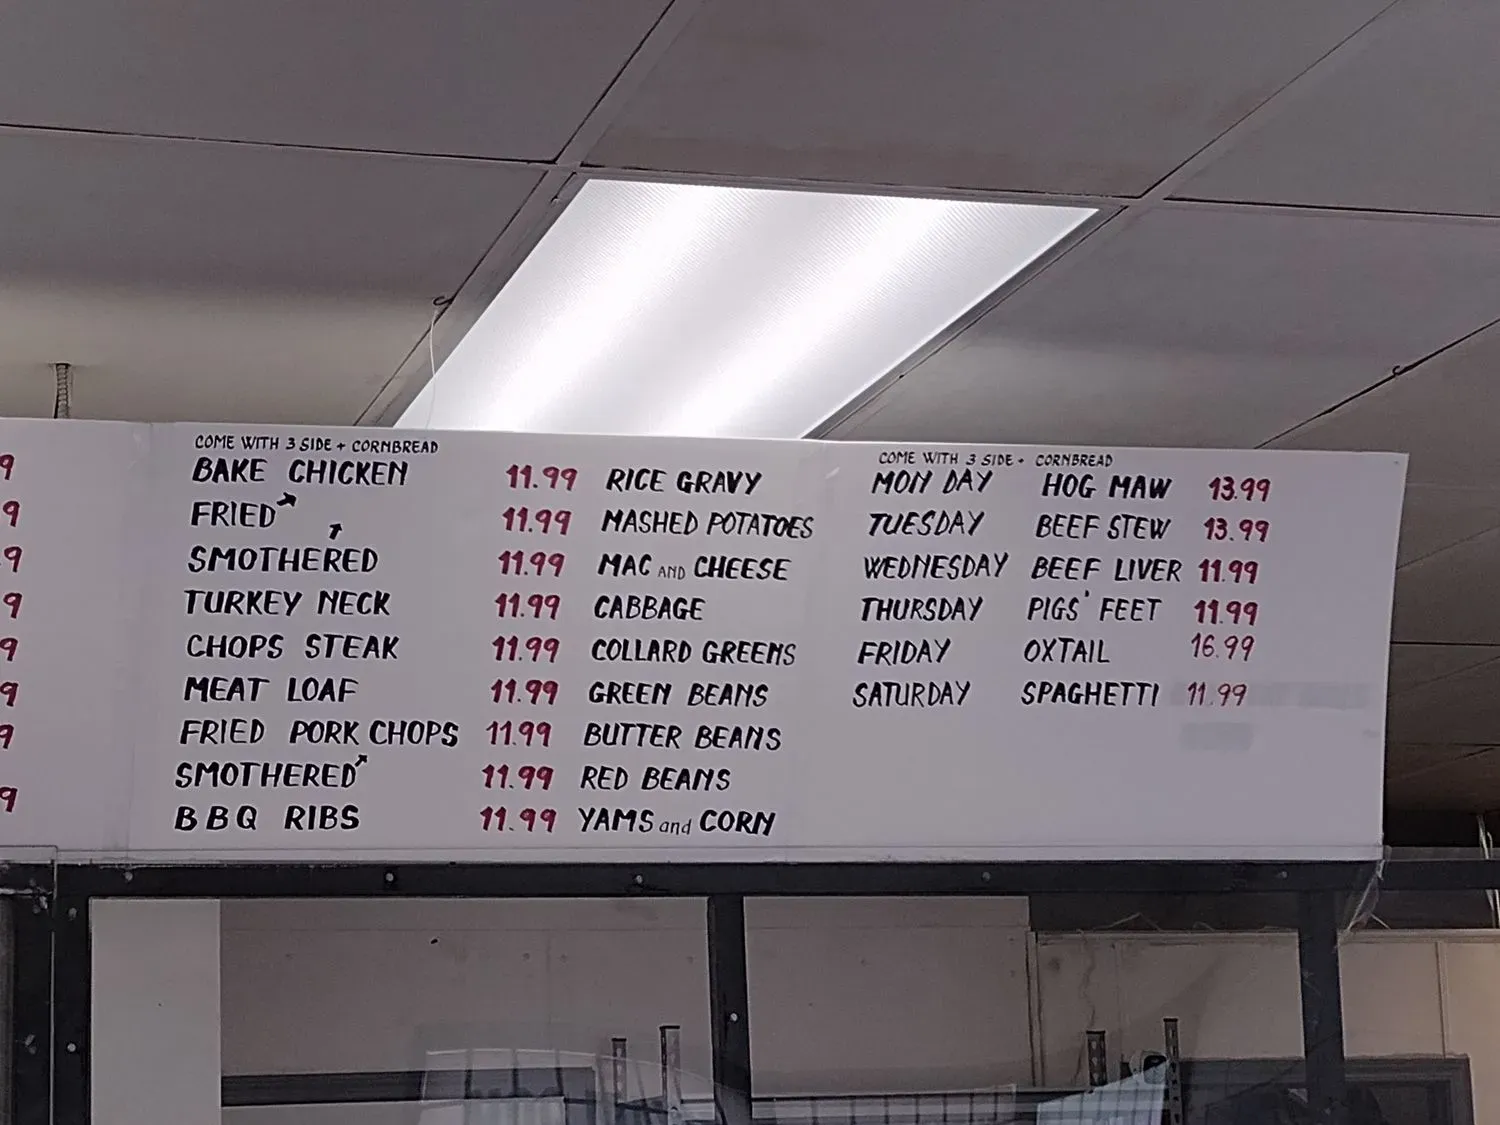 9
9
9
9
9
9
9
9
COME WITH 3 SIDE + CORNBREAD
BAKE CHICKEN 11.99
FRIED ↗ 11.99
SMOTHERED ↑ 11.99
TURKEY NECK 11.99
CHOPS STEAK 11.99
MEAT LOAF 11.99
FRIED PORK CHOPS 11.99
SMOTHERED ↗ 11.99
BBQ RIBS 11.99
RICE GRAVY
MASHED POTATOES
MAC AND CHEESE
CABBAGE
COLLARD GREENS
GREEN BEANS
BUTTER BEANS
RED BEANS
YAMS and CORN
COME WITH 3 SIDE + CORNBREAD
MON DAY HOG MAW 13.99
TUESDAY BEEF STEW 13.99
WEDNESDAY BEEF LIVER 11.99
THURSDAY PIGS' FEET 11.99
FRIDAY OXTAIL 16.99
SATURDAY SPAGHETTI 11.99